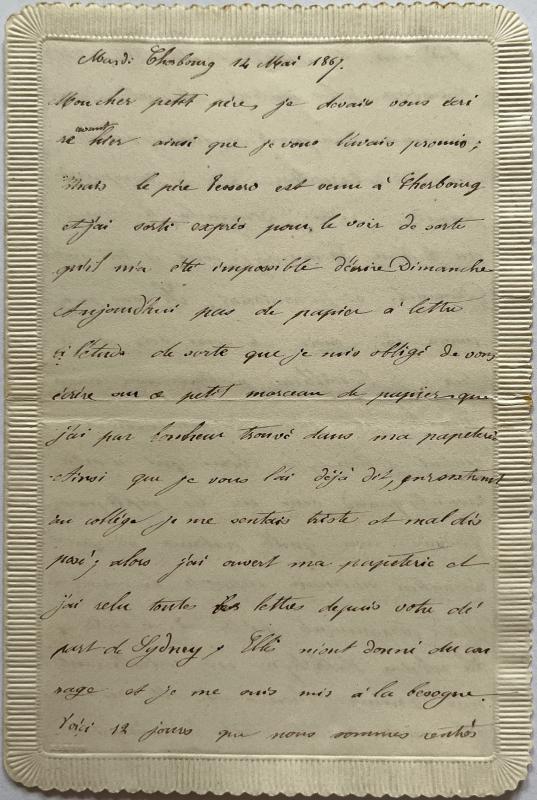 Mardi Cherbourg 14 Mai 1867.
Mon cher petit père, je devais vous écri
re avant hier ainsi que je vous l'avais promis;
Mais le père est venu à Cherbourg
et j'ai sorti exprès pour le voir de sorte
qu'il m'a été impossible d'écrire Dimanche
Aujourd'hui pas de papier à lettre
à l'étude de sorte que je suis obligé de vous
écrire sur ce petit morceau de papier que
j'ai par bonheur trouvé dans ma papeterie
Ainsi que je vous l'ai déjà dit, en rentrant
au collège je me sentais triste et mal dis
posé; alors j'ai ouvert ma papeterie et
j'ai relu toutes les lettres depuis votre dé
part de Sydney, Elles m'ont donné du cou
rage et je me suis mis à la besogne.
Voici 12 jours que nous sommes rentrés